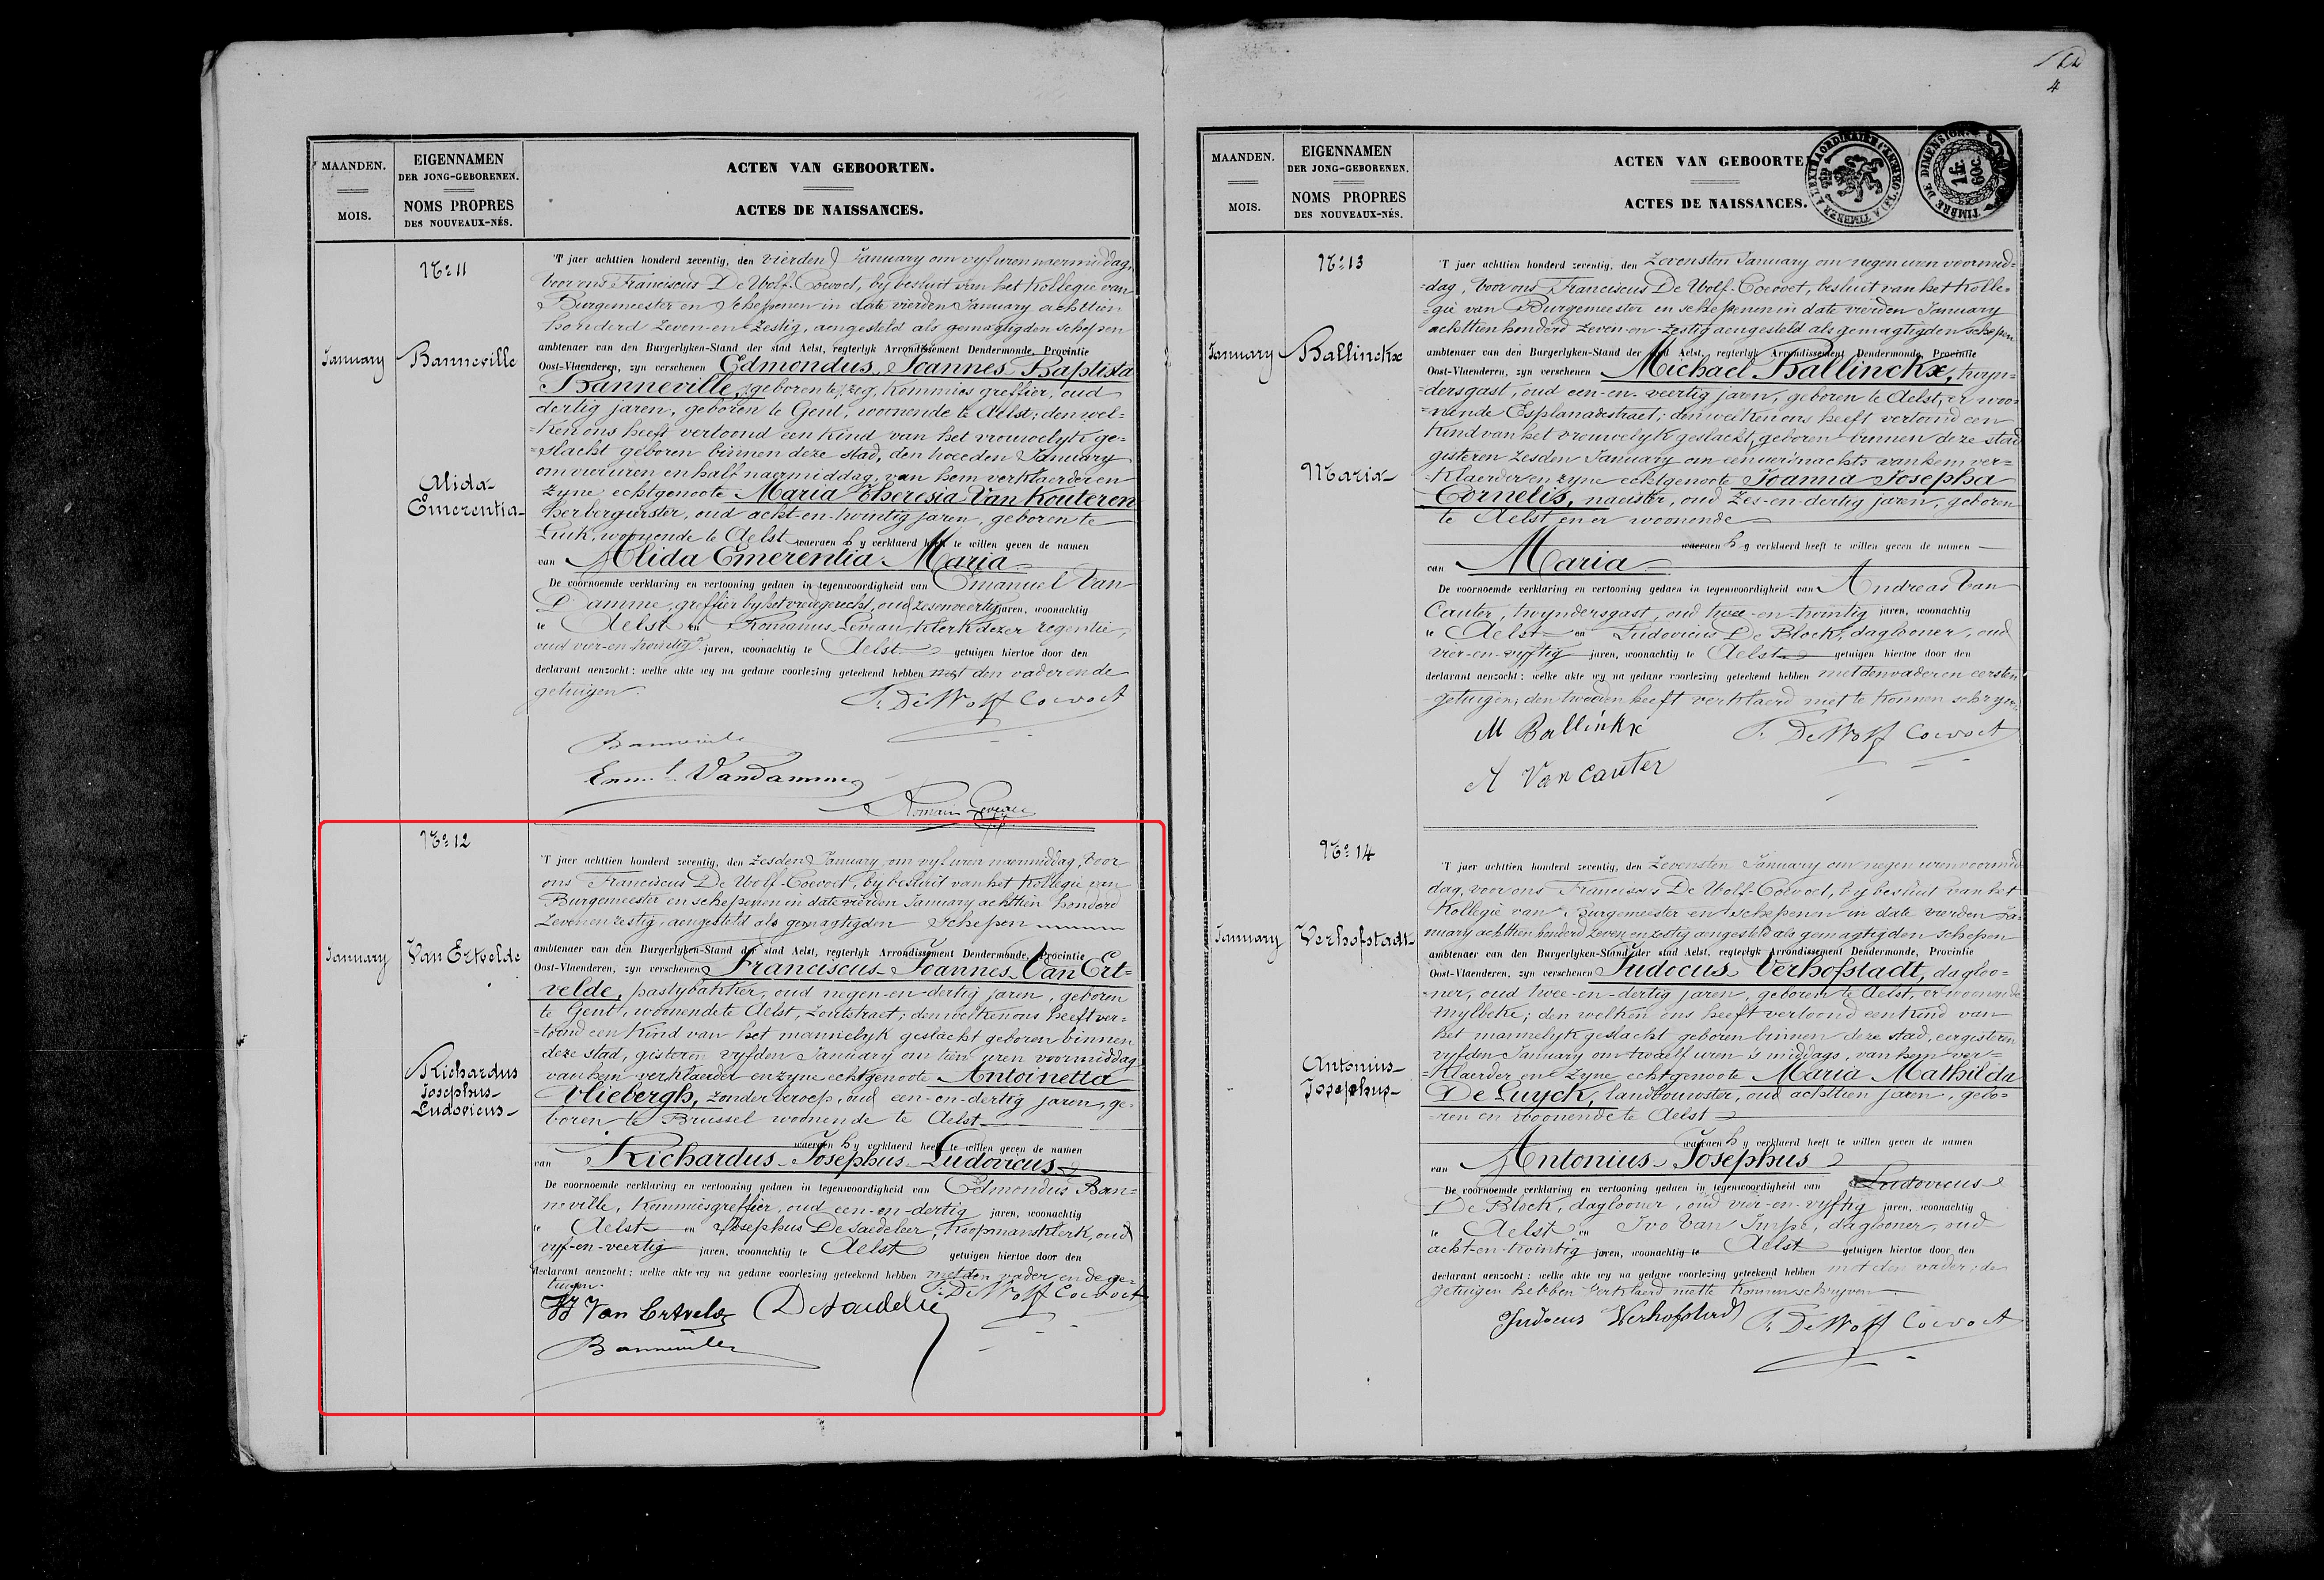 4
MAANDEN.
MOIS.
EIGENNAMEN
DER JONG-GEBORENEN.
NOMS PROPRES
DES NOUVEAUX-NÉS.
ACTEN VAN GEBOORTEN.
ACTES DE NAISSANCES.
No 11
January
Banneville
Alida
Emerentia
'T jaer achttien honderd zeventig, den vierden January om vyf uren naermiddag,
voor ons Franciscus De Wolf-Coevoet, by besluit van het Kollegie van
Burgemeester en Schepenen in date vierden January achttien
honderd zeven-en-zestig, aengesteld als gemagtigden schepen
ambtenaer van den Burgerlyken-Stand der stad Aelst, regterlyk Arrondissement Dendermonde, Provintie
Oost-Vlaenderen, zyn verschenen Edmondus Joannes Baptista
Banneville, geboren te, zeg, Kommies greffier, oud
dertig jaren, geboren te Gent, woonende te Aelst; den wel=
=ken ons heeft vertoond een kind van het vrouwelyk ge=
=slacht geboren binnen deze stad, den tweeden January
om vier uren en half naermiddag, van hem verklaerder en
zyne echtgenoote Maria Theresia Van Kouteren
herbergierster, oud acht-en-twintig jaren, geboren te
Luik, woonende te Aelst waeraen hy verklaerd heeft te willen geven de namen
van Alida Emerentia Maria
De voornoemde verklaring en vertooning gedaen in tegenwoordigheid van Emanuel Van
Damme, greffier by het vredegerecht, oud zesenveertig jaren, woonachtig
te Aelst en Romanus Leveau, klerk dezer regentie,
oud vier-en-twintig jaren, woonachtig te Aelst getuigen hiertoe door den
declarant aenzocht: welke akte wy na gedane voorlezing geteekend hebben met den vader en de
getuigen.
F. De Wolf Coevoet
Banneville
Eman.l VanDamme
Romain Leveau
No 12
January
Van Ertvelde
Richardus
Josephus
Ludovicus
'T jaer achttien honderd zeventig, den zesden January om vyf uren naermiddag, voor
ons Franciscus De Wolf-Coevoet, by besluit van het Kollegie van
Burgemeester en schepenen in date vierden January achttien honderd
zeven en zestig, aengesteld als gemagtigden schepen
ambtenaer van den Burgerlyken-Stand der stad Aelst, regterlyk Arrondissement Dendermonde, Provintie
Oost-Vlaenderen, zyn verschenen Franciscus Joannes Van Ert=
velde, pastybakker, oud negen-en-dertig jaren, geboren
te Gent, woonende te Aelst, Zoutstraet; den welken ons heeft ver=
=toond een kind van het mannelyk geslacht geboren binnen
deze stad, gisteren vyfden January om tien uren voormiddag
van hem verklaerder en zyne echtgenoote Antoinetta
Vliebergh, zonder beroep, oud een-en-dertig jaren, ge=
boren te Brussel woonende te Aelst
waeraen hy verklaerd heeft te willen geven de namen
van Richardus Josephus Ludovicus
De voornoemde verklaring en vertooning gedaen in tegenwoordigheid van Edmondus Ban=
neville, kommiesgreffier, oud een-en-dertig jaren, woonachtig
te Aelst en Josephus De Saedeleer, koopmansklerk, oud
vyf-en-veertig jaren, woonachtig te Aelst getuigen hiertoe door den
declarant aenzocht: welke akte wy na gedane voorlezing geteekend hebben met den vader en de ge=
tuigen.
F. De Wolf Coevoet
Van Ertvelde
DeSaedeleer
Banneville
MAANDEN.
MOIS.
EIGENNAMEN
DER JONG-GEBORENEN.
NOMS PROPRES
DES NOUVEAUX-NÉS.
ACTEN VAN GEBOORTEN
ACTES DE NAISSANCES.
TIMBRE DE DIMENSION
No 13
January
Ballinckx
Maria
'T jaer achttien honderd zeventig, den zevensten January om negen uren voormid=
=dag, voor ons Franciscus De Wolf-Coevoet, besluit van het Kolle=
=gie van Burgemeester en schepenen in date vierden January
achttien honderd zeven-en-zestig aengesteld als gemagtigden schepen
ambtenaer van den Burgerlyken-Stand der stad Aelst, regterlyk Arrondissement Dendermonde, Provintie
Oost-Vlaenderen, zyn verschenen Michael Ballinckx, twyn=
=dersgast, oud een-en-veertig jaren, geboren te Aelst, er woo=
=nende Esplanadestraet; den welken ons heeft vertoond een
kind van het vrouwelyk geslacht, geboren binnen deze stad
gisteren zesden January om een ure 's nachts van hem ver=
=klaerder en zyne echtgenoote Joanna Josepha
Cornelis, naeister, oud zes-en-dertig jaren, geboren
te Aelst en er woonende
waeraen hy verklaerd heeft te willen geven de namen
van Maria
De voornoemde verklaring en vertooning gedaen in tegenwoordigheid van Andreas Van
Cauter, twyndersgast, oud twee-en-twintig jaren, woonachtig
te Aelst en Ludovicus De Block, daglooner, oud
vier-en-vyftig jaren, woonachtig te Aelst getuigen hiertoe door den
declarant aenzocht: welke akte wy na gedane voorlezing geteekend hebben met den vader en eersten
getuigen; den tweeden heeft verklaerd niet te konnen schryven
M Ballinkx
F. De Wolf Coevoet
A Van Cauter
No 14
January
Verhofstadt
Antonius
Josephus
'T jaer achttien honderd zeventig, den zevensten January om negen uren voormid
dag, voor ons Franciscus De Wolf-Coevoet, by besluit van het
Kollegie van Burgemeester en schepenen in date vierden Ja=
nuary achttien honderd zeven en zestig aengesteld als gemagtigden schepen
ambtenaer van den Burgerlyken-Stand der stad Aelst, regterlyk Arrondissement Dendermonde, Provintie
Oost-Vlaenderen, zyn verschenen Judocus Verhofstadt, dagloo=
=ner, oud twee-en-dertig jaren, geboren te Aelst, er woonende
Mylbeke; den welken ons heeft vertoond een kind van
het mannelyk geslacht geboren binnen deze stad, eergisteren
vyfden January om twaelf uren 's middags, van hem ver=
=klaerder en zyne echtgenoote Maria Mathilda
De Luyck, landbouwster, oud achttien jaren, gebo=
=ren en woonende te Aelst
waeraen hy verklaerd heeft te willen geven de namen
van Antonius Josephus
De voornoemde verklaring en vertooning gedaen in tegenwoordigheid van Ludovicus
De Block, daglooner, oud vier-en-vyftig jaren, woonachtig
te Aelst en Ivo Van Impe, daglooner, oud
acht-en-twintig jaren, woonachtig te Aelst getuigen hiertoe door den
declarant aenzocht: welke akte wy na gedane voorlezing geteekend hebben met den vader; de
getuigen hebben verklaerd niet te konnen schryven
Judocus Verhofstadt
F. De Wolf Coevoet